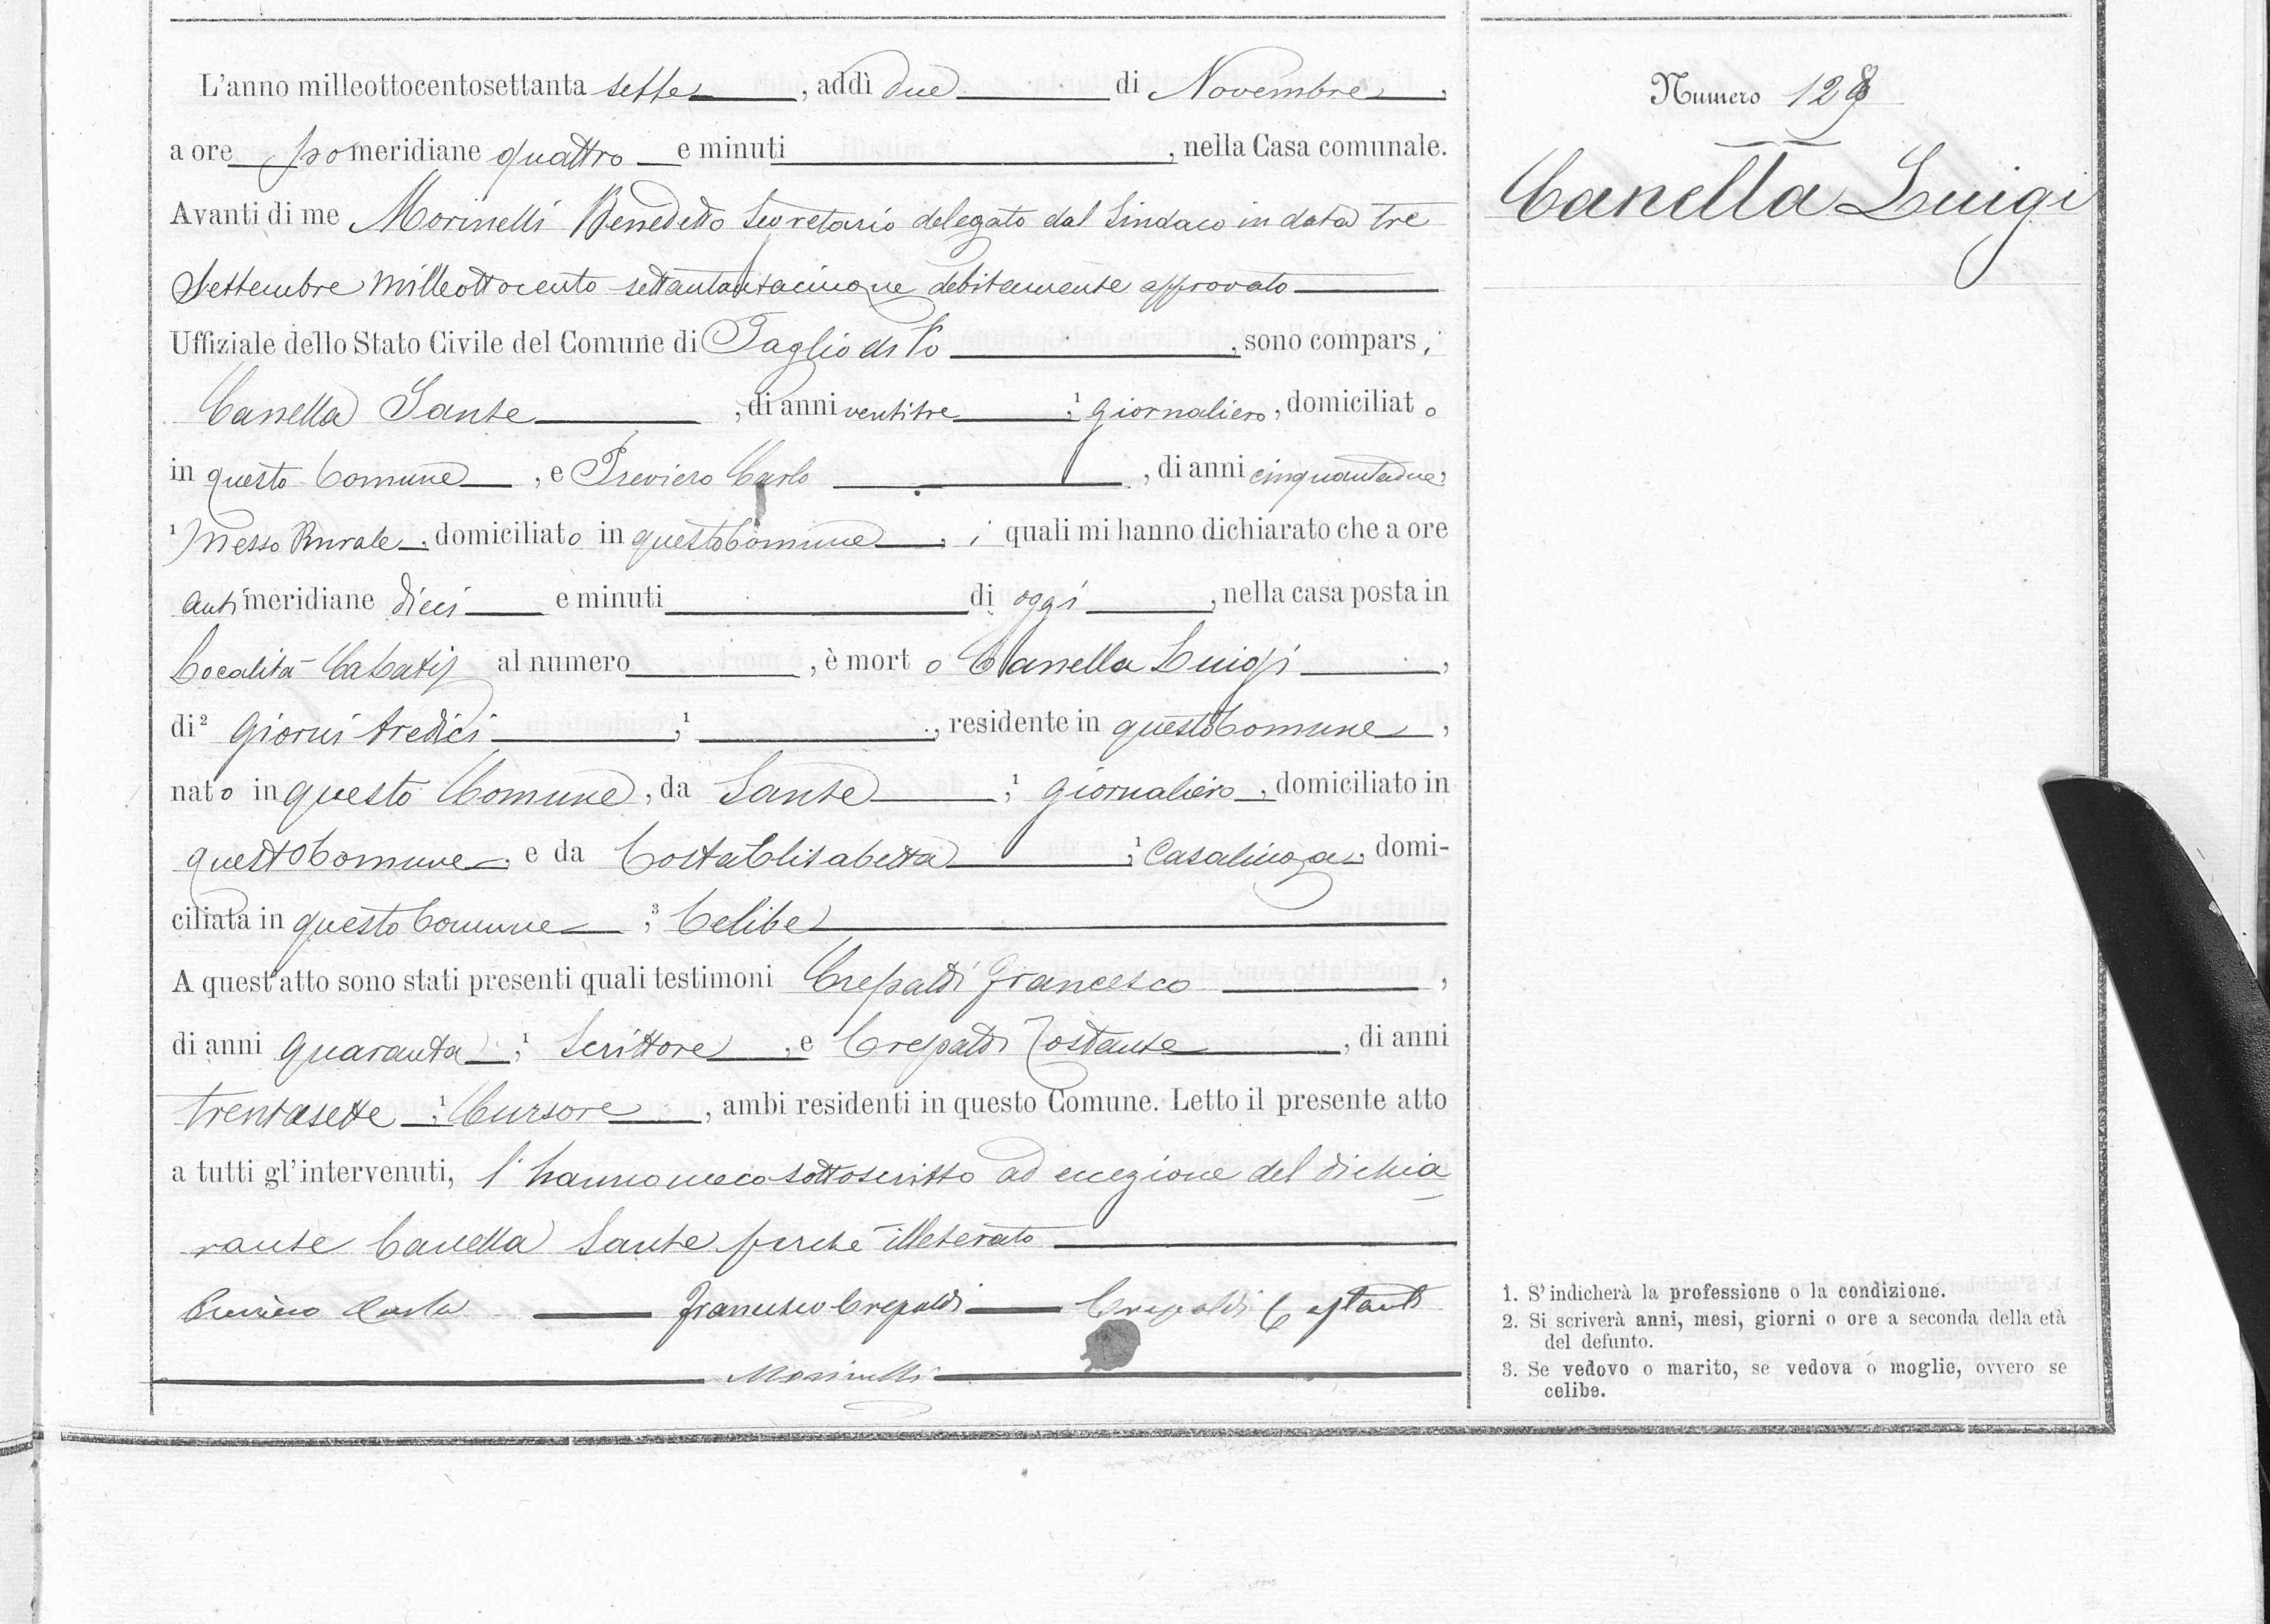 L'anno milleottocentosettanta sette, addì due di Novembre,
a ore pomeridiane quattro e minuti , nella Casa comunale.
Avanti di me Morinelli Benedetto Segretario delegato dal Sindaco in data tre
Settembre milleottocento settantacinque debitamente approvato
Uffiziale dello Stato Civile del Comune di Taglio di Po, sono comparsi
Canella Sante, di anni ventitre, ¹ giornaliero, domiciliato
in questo Comune, e Previero Carlo, di anni cinquantadue,
¹ Messo Rurale, domiciliato in questo Comune, i quali mi hanno dichiarato che a ore
antimeridiane dieci e minuti di oggi, nella casa posta in
Località al numero , è morto Canella Luigi,
di² Giorni tredici, ¹ , residente in questo Comune,
nato in questo Comune, da Sante, ¹ giornaliero, domiciliato in
questo Comune, e da Costa Elisabetta, ¹ Casalinga, domi-
ciliata in questo Comune, ³ Celibe
A quest'atto sono stati presenti quali testimoni Crepaldi Francesco,
di anni quaranta, ¹ Scrittore, e Crepaldi Costante, di anni
trentasette, ¹ Cursore, ambi residenti in questo Comune. Letto il presente atto
a tutti gl'intervenuti, l'hanno meco sottoscritto ad eccezione del dichia
rante Canella Sante perchè illeterato
Previero Carlo Francesco Crepaldi Crepaldi Costante
Morinelli
Numero 128
Canella Luigi
1. S'indicherà la professione o la condizione.
2. Si scriverà anni, mesi, giorni o ore a seconda della età
del defunto.
3. Se vedovo o marito, se vedova o moglie, ovvero se
celibe.